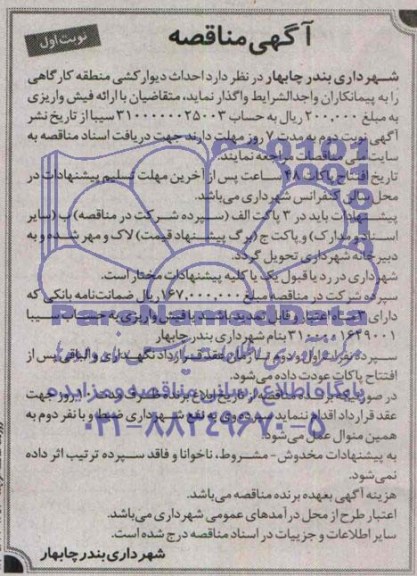 نوبت اول
آگهی مناقصه
شهرداری بندر چابهار در نظر دارد احداث دیوارکشی منطقه کارگاهی
را به پیمانکاران واجدالشرایط واگذار نماید، متقاضیان با ارائه فیش واریزی
به مبلغ ۲۰۰,۰۰۰ ریال به حساب ۳۱۰۰۰۰۰۰۲۵۰۰۳ سیبا از تاریخ نشر
آگهی نوبت دوم به مدت ۷ روز مهلت دارند جهت دریافت اسناد مناقصه به
سایت ملی مناقصات مراجعه نمایند.
تاریخ افتتاح پاکات ۴۸ ساعت پس از آخرین مهلت تسلیم پیشنهادات در
محل سالن کنفرانس شهرداری می‌باشد.
پیشنهادات باید در ۳ پاکت الف (سپرده شرکت در مناقصه) ب (سایر
اسناد و مدارک) و پاکت ج (برگ پیشنهاد قیمت) لاک و مهر شده و به
دبیرخانه شهرداری تحویل گردد.
شهرداری در رد یا قبول یک یا کلیه پیشنهادات مختار است.
سپرده شرکت در مناقصه مبلغ ۱۶۷,۰۰۰,۰۰۰ ریال ضمانت‌نامه بانکی که
دارای ۳ ماه اعتبار و قابل تمدید باشد یا فیش واریزی به حساب سیبا
بنام شهرداری بندر چابهار
سپرده نفرات اول و دوم تا زمان عقد قرارداد نگهداری و الباقی پس از
افتتاح پاکات عودت داده می‌شود.
در صورتیکه برنده مناقصه از تاریخ ابلاغ برنده ظرف مدت ۷ روز جهت
عقد قرارداد اقدام ننماید سپرده وی به نفع شهرداری ضبط و با نفر دوم به
همین منوال عمل می‌شود.
به پیشنهادات مخدوش - مشروط، ناخوانا و فاقد سپرده ترتیب اثر داده
نمی‌شود.
هزینه آگهی بعهده برنده مناقصه می‌باشد.
اعتبار طرح از محل درآمدهای عمومی شهرداری می‌باشد.
سایر اطلاعات و جزییات در اسناد مناقصه درج شده است.
شهرداری بندر چابهار
ParsNamadData
پایگاه اطلاع رسانی مناقصه و مزایده
۰۲۱-۸۸۳۴۹۶۷۰-۵